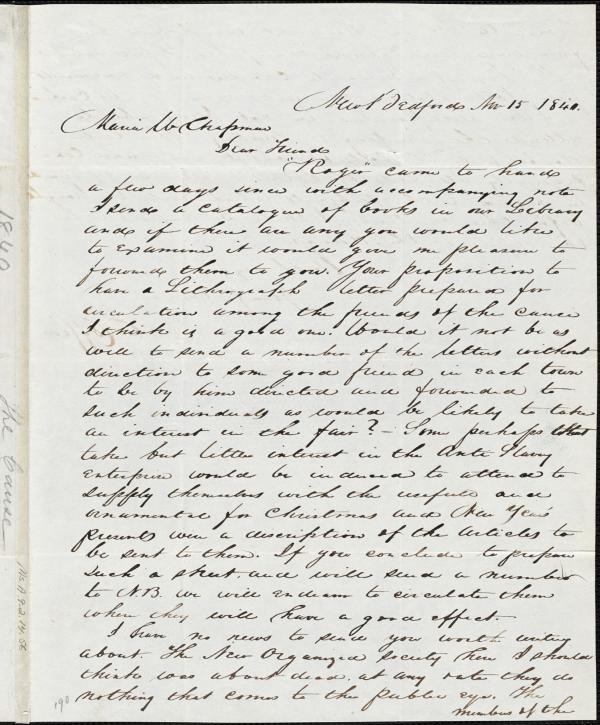 New Bedford Nov 15 1840.
Maria W Chapman
Dear Friend
"Roger" came to hand
a few days since with accompanying note
I send a catalogue of books in our Library
and if there are any you would like
to examine it would give me pleasure to
forward them to you. Your proposition to
have a Lithograph letter prepared for
circulation among the friends of the cause
I think is a good one. Would it not be as
well to send a number of the letters without
direction to some good friend in each town
to be by him directed and forwarded to
such individuals as would be likely to take
an interest in the fair? - Some perhaps that
take but little interest in the Anti Slavery
Enterprise would be induced to attend to
supply themselves with the useful and
ornamental for Christmas and New Year
presents were a description of the articles to
be sent to them. If you conclude to prepare
such a sheet and will send a number
to N.B. we will endeavor to circulate them
where they will have a good effect.
I have no news to send you worth writing
about. The New Organized society here I should
think was about dead at any rate they do
nothing that comes to the public eye. The
members of the
1840
The Cause
Ms.A.9.2.14.
190